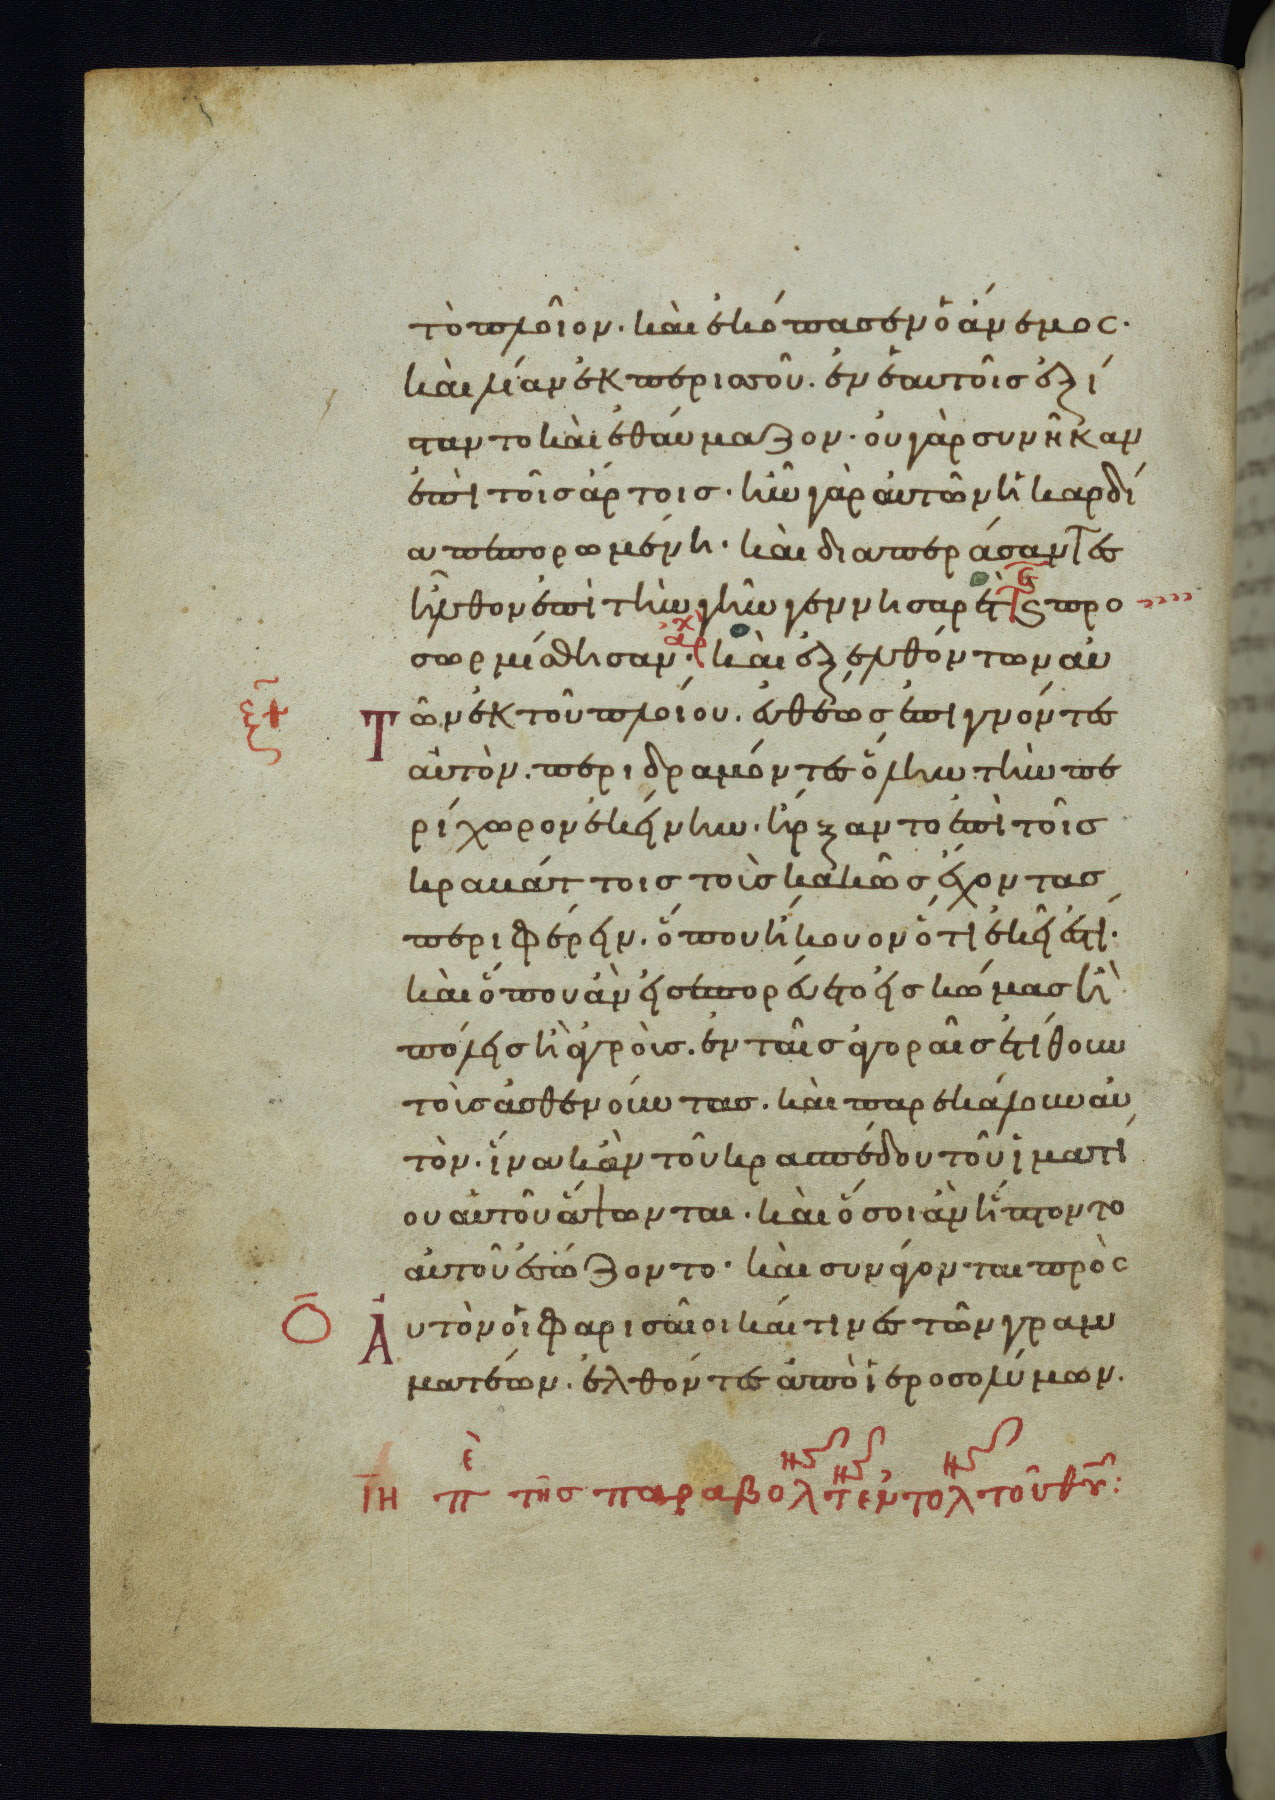 τὸ πλοῖον· καὶ ἐκόπασεν ὁ ἄνεμος·
καὶ λίαν ἐκ περισσοῦ. ἐν ἑαυτοῖς ἐξί
σταντο καὶ ἐθαύμαζον· οὐ γὰρ συνῆκαν
ἐπὶ τοῖς ἄρτοις· ἦν γὰρ αὐτῶν ἡ καρδί
α πεπορωμένη· καὶ διαπεράσαντες
ἦλθον ἐπὶ τὴν γῆν γεννησαρέτ καὶ προ
σωρμίσθησαν· καὶ ἐξελθόντων αὐ
Τῶν ἐκ τοῦ πλοίου. εὐθέως ἐπιγνόντες
αὐτὸν. περιδραμόντες ὅλην τὴν πε
ρίχωρον ἐκείνην· ἤρξαντο ἐπὶ τοῖς
κραβάττοις τοὺς κακῶς ἔχοντας
περιφέρειν. ὅπου ἤκουον ὅτι ἐκεῖ ἐστί·
καὶ ὅπου ἂν εἰσεπορεύετο εἰς κώμας ἢ
πόλεις ἢ ἀγροὺς. ἐν ταῖς ἀγοραῖς ἐτίθουν
τοὺς ἀσθενοῦντας. καὶ παρεκάλουν αὐ
τὸν. ἵνα κἂν τοῦ κρασπέδου τοῦ ἱματί
ου αὐτοῦ ἅψωνται. καὶ ὅσοι ἂν ἥπτοντο
αὐτοῦ ἐσώζοντο· καὶ συνάγονται πρὸς
Ἀυτὸν οἱ φαρισαῖοι καί τινες τῶν γραμ
ματέων. ἐλθόντες ἀπὸ ἱεροσολύμων.
ιη πε τῆς παραβολ τ ἐντολ τοῦ κυ: